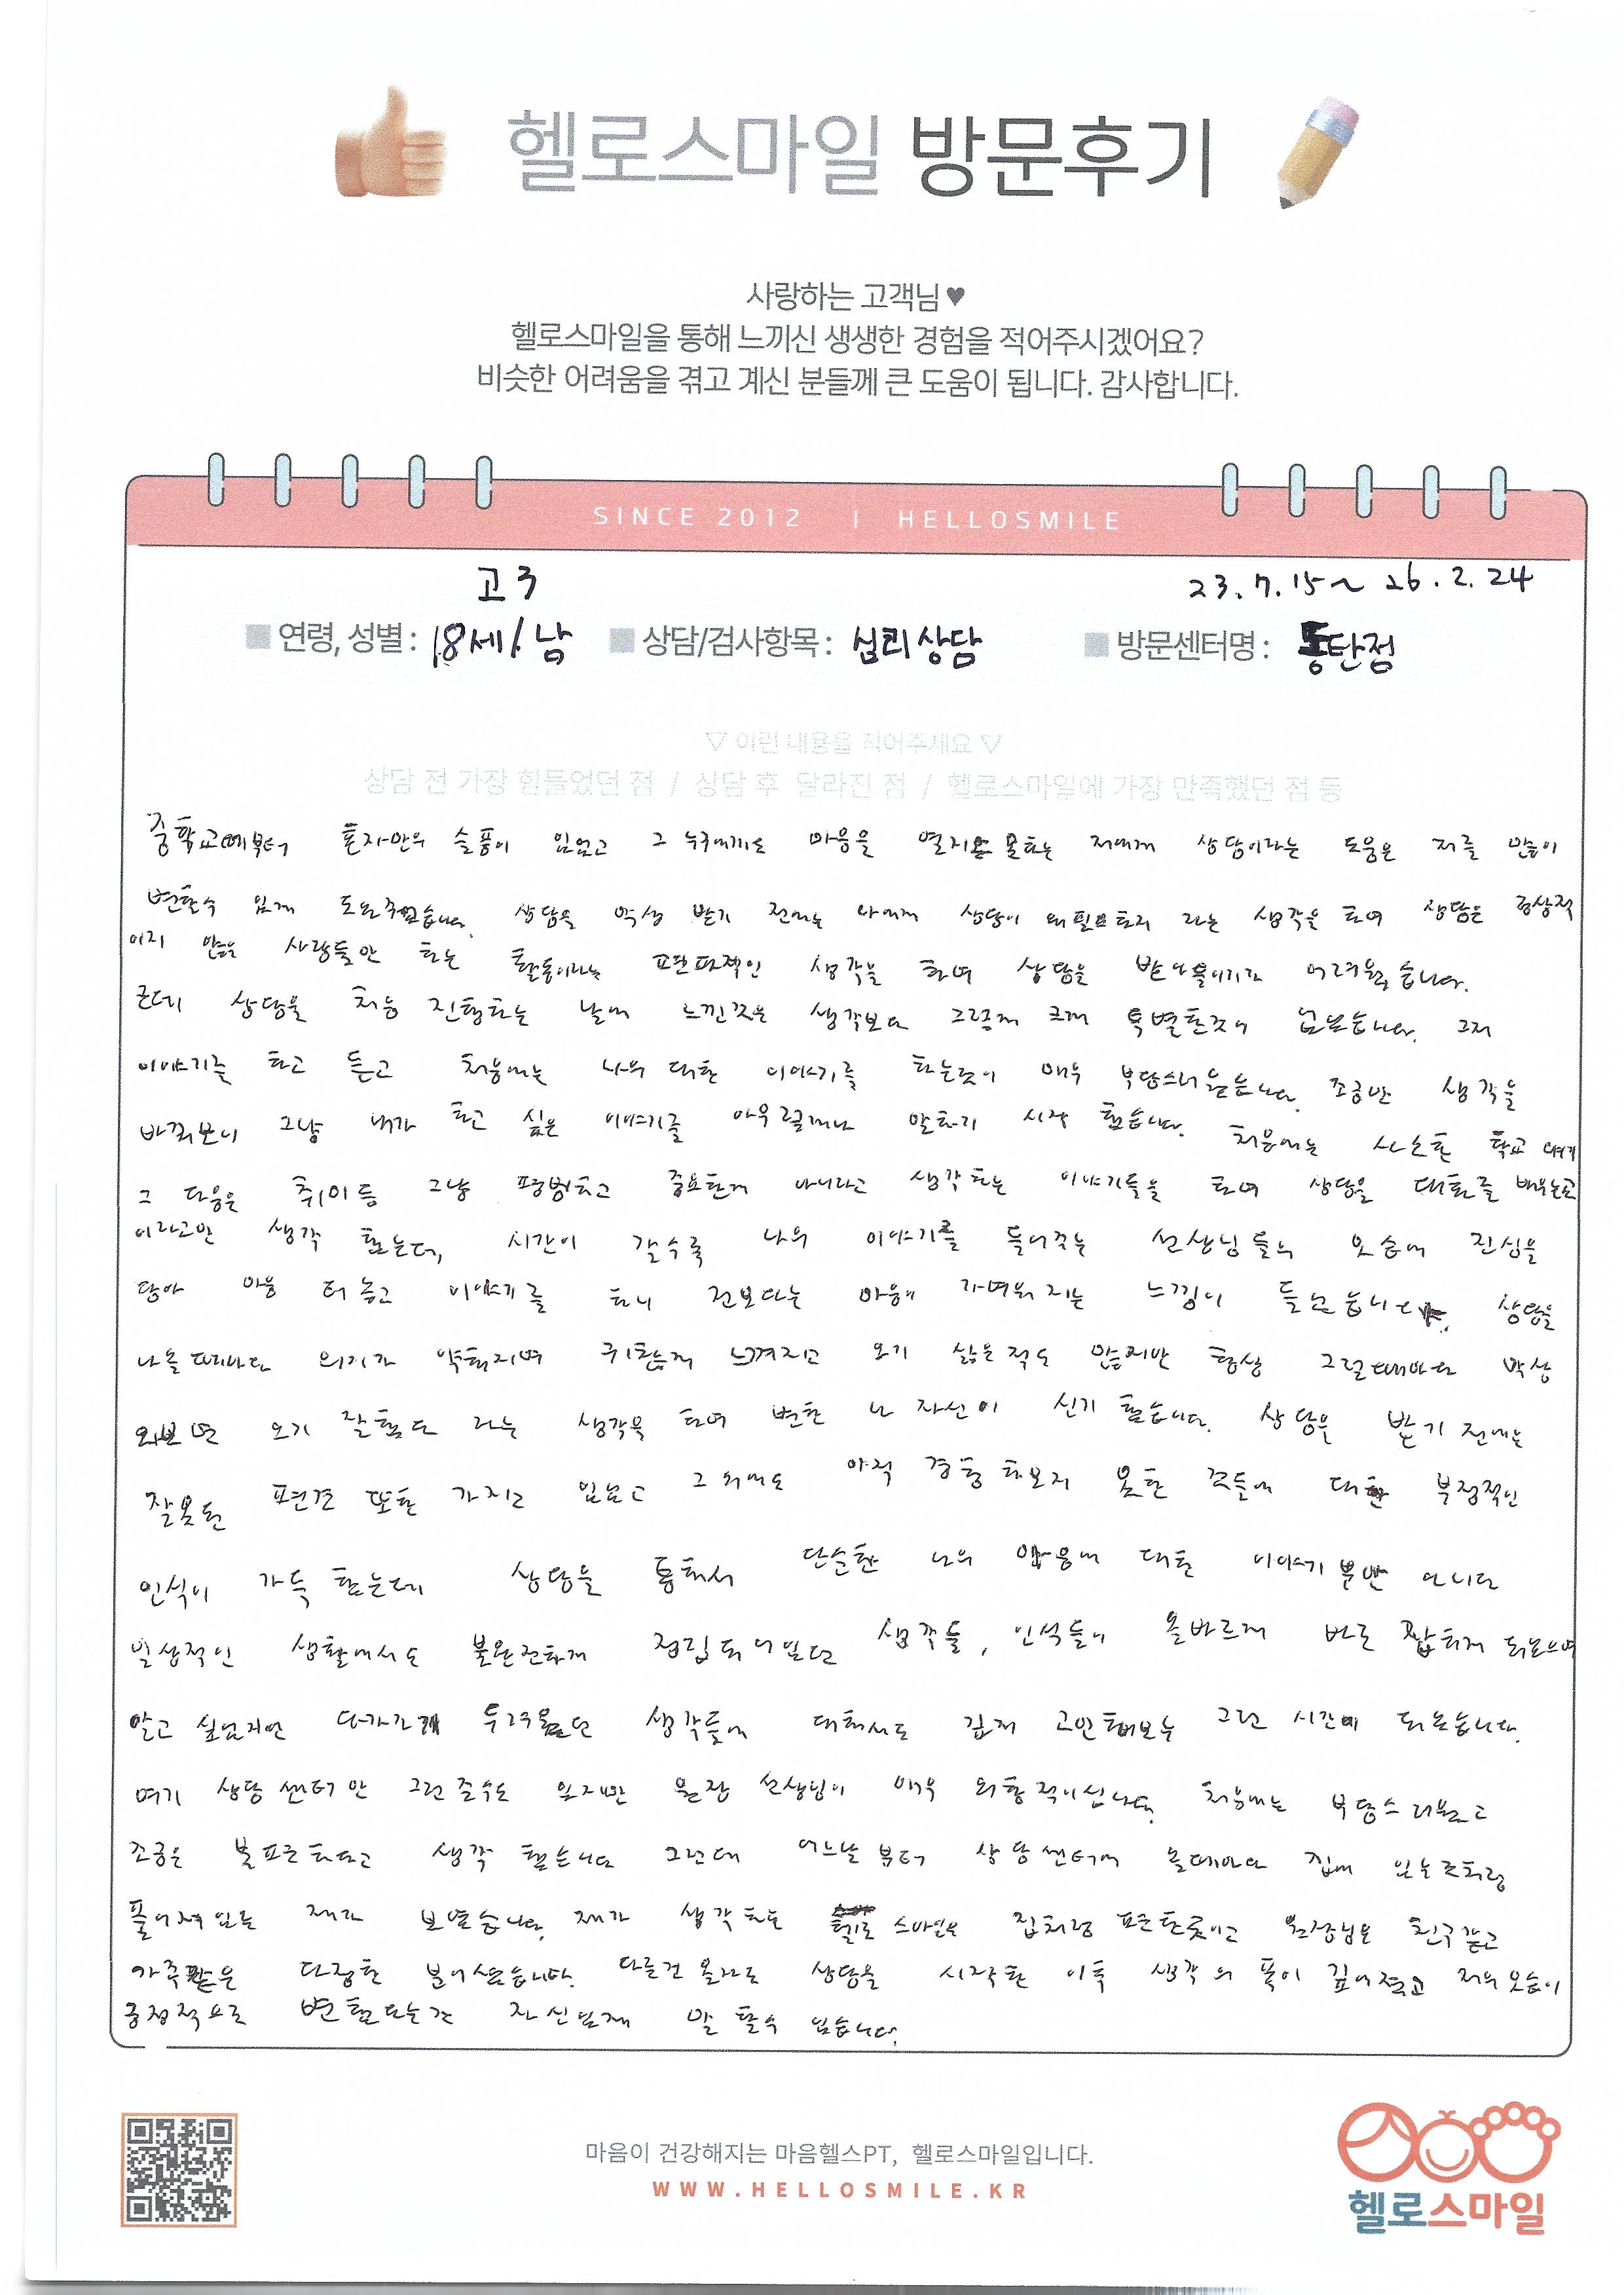 헬로스마일 방문후기
사랑하는 고객님♥
헬로스마일을 통해 느끼신 생생한 경험을 적어주시겠어요?
비슷한 어려움을 겪고 계신 분들께 큰 도움이 됩니다. 감사합니다.
SINCE 2012 | HELLOSMILE
고3 23.7.15~ 26.2.24
연령, 성별 : 18세/남 상담/검사항목 : 심리상담 방문센터명 : 동탄점
▽ 이런 내용을 적어주세요 ▽
상담 전 가장 힘들었던 점 / 상담 후 달라진 점 / 헬로스마일에 가장 만족했던 점 등
중학교때부터 혼자만의 슬픔이 있었고 그 누구에게도 마음을 열지 못하는 저에게 상담이라는 도움은 저를 많이
변할수 있게 도와주었습니다. 상담을 막상 받기 전에는 나에게 상담이 왜필요하지 라는 생각을 하며 상담은 정상적
이지 않은 사람들만 하는 활동이라는 편파적인 생각을 하며 상담을 받아들이기가 어려웠습니다.
근데 상담을 처음 진행하는 날에 느낀것은 생각보다 그렇게 크게 특별한것이 없었습니다. 그저
이야기를 하고 듣고 처음에는 나의 대한 이야기를 하는것이 매우 부담스러웠습니다. 조금만 생각을
바꿔보니 그냥 내가 하고 싶은 이야기를 아무렇게나 말하기 시작 했습니다. 처음에는 사소한 학교 얘기
그 다음은 취미등 그냥 평범하고 중요한게 아니라고 생각하는 이야기들을 하며 상담을 대화를 배우는곳
이라고만 생각 했는데, 시간이 갈수록 나의 이야기를 들어주는 선생님들의 모습에 진심을
담아 마음 터놓고 이야기를 하니 전보다는 마음이 가벼워지는 느낌이 들었습니다. 상담을
나올때마다 의지가 약해지며 귀찮게 느껴지고 오기 싫은적도 많지만 항상 그럴때마다 막상
와보면 오기 잘했다 라는 생각을 하며 변한 나 자신이 신기 했습니다. 상담을 받기 전에는
잘못된 편견 또한 가지고 있었고 그 외에도 아직 경험해보지 못한 것들에 대한 부정적인
인식이 가득 했는데 상담을 통해서 단순한 나의 마음에 대한 이야기 뿐만 아니라
일상적인 생활에서도 불완전하게 정립되어있던 생각들, 인식들이 올바르게 바로 잡히게 되었으며
알고 싶었지만 다가가기 두려웠던 생각들에 대해서도 깊게 고민해보는 그런 시간이 되었습니다.
여기 상담센터만 그런줄수도 있지만 원장 선생님이 매우 외향적이십니다. 처음에는 부담스러웠고
조금은 불편하다고 생각 했습니다 그런데 어느날부터 상담센터에 올때마다 집에 있는것처럼
풀어져있는 제가 보였습니다. 제가 생각하는 헬로 스마일은 집처럼 편한곳이고 원장님은 친구같고
가족같은 다정한 분이셨습니다. 다른건 몰라도 상담을 시작한 이후 생각의 폭이 깊어졌고 저의 모습이
긍정적으로 변했다는건 자신있게 말 할수 있습니다.
마음이 건강해지는 마음헬스PT, 헬로스마일입니다.
WWW.HELLOSMILE.KR
헬로스마일